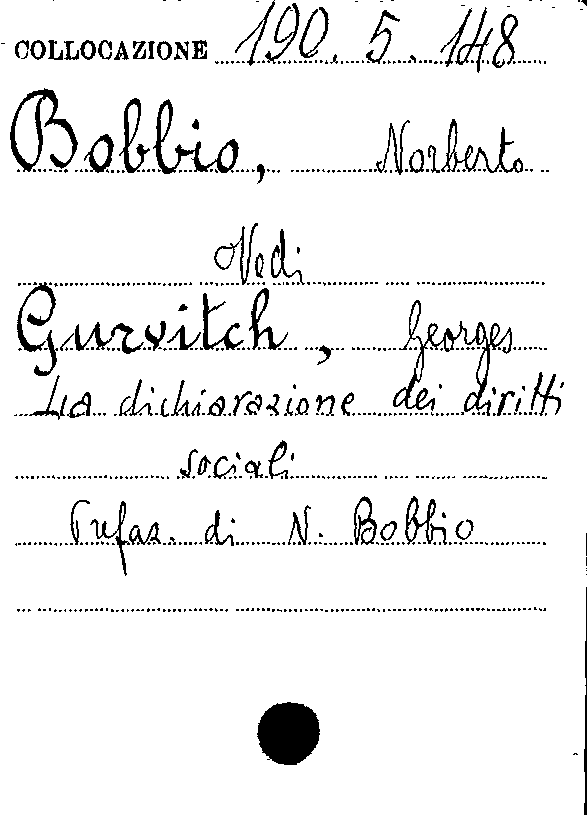 COLLOCAZIONE 190. 5. 148
Bobbio, Norberto
Vedi
Gurvitch, Georges
La dichiarazione dei diritti
sociali
Prefaz. di N. Bobbio